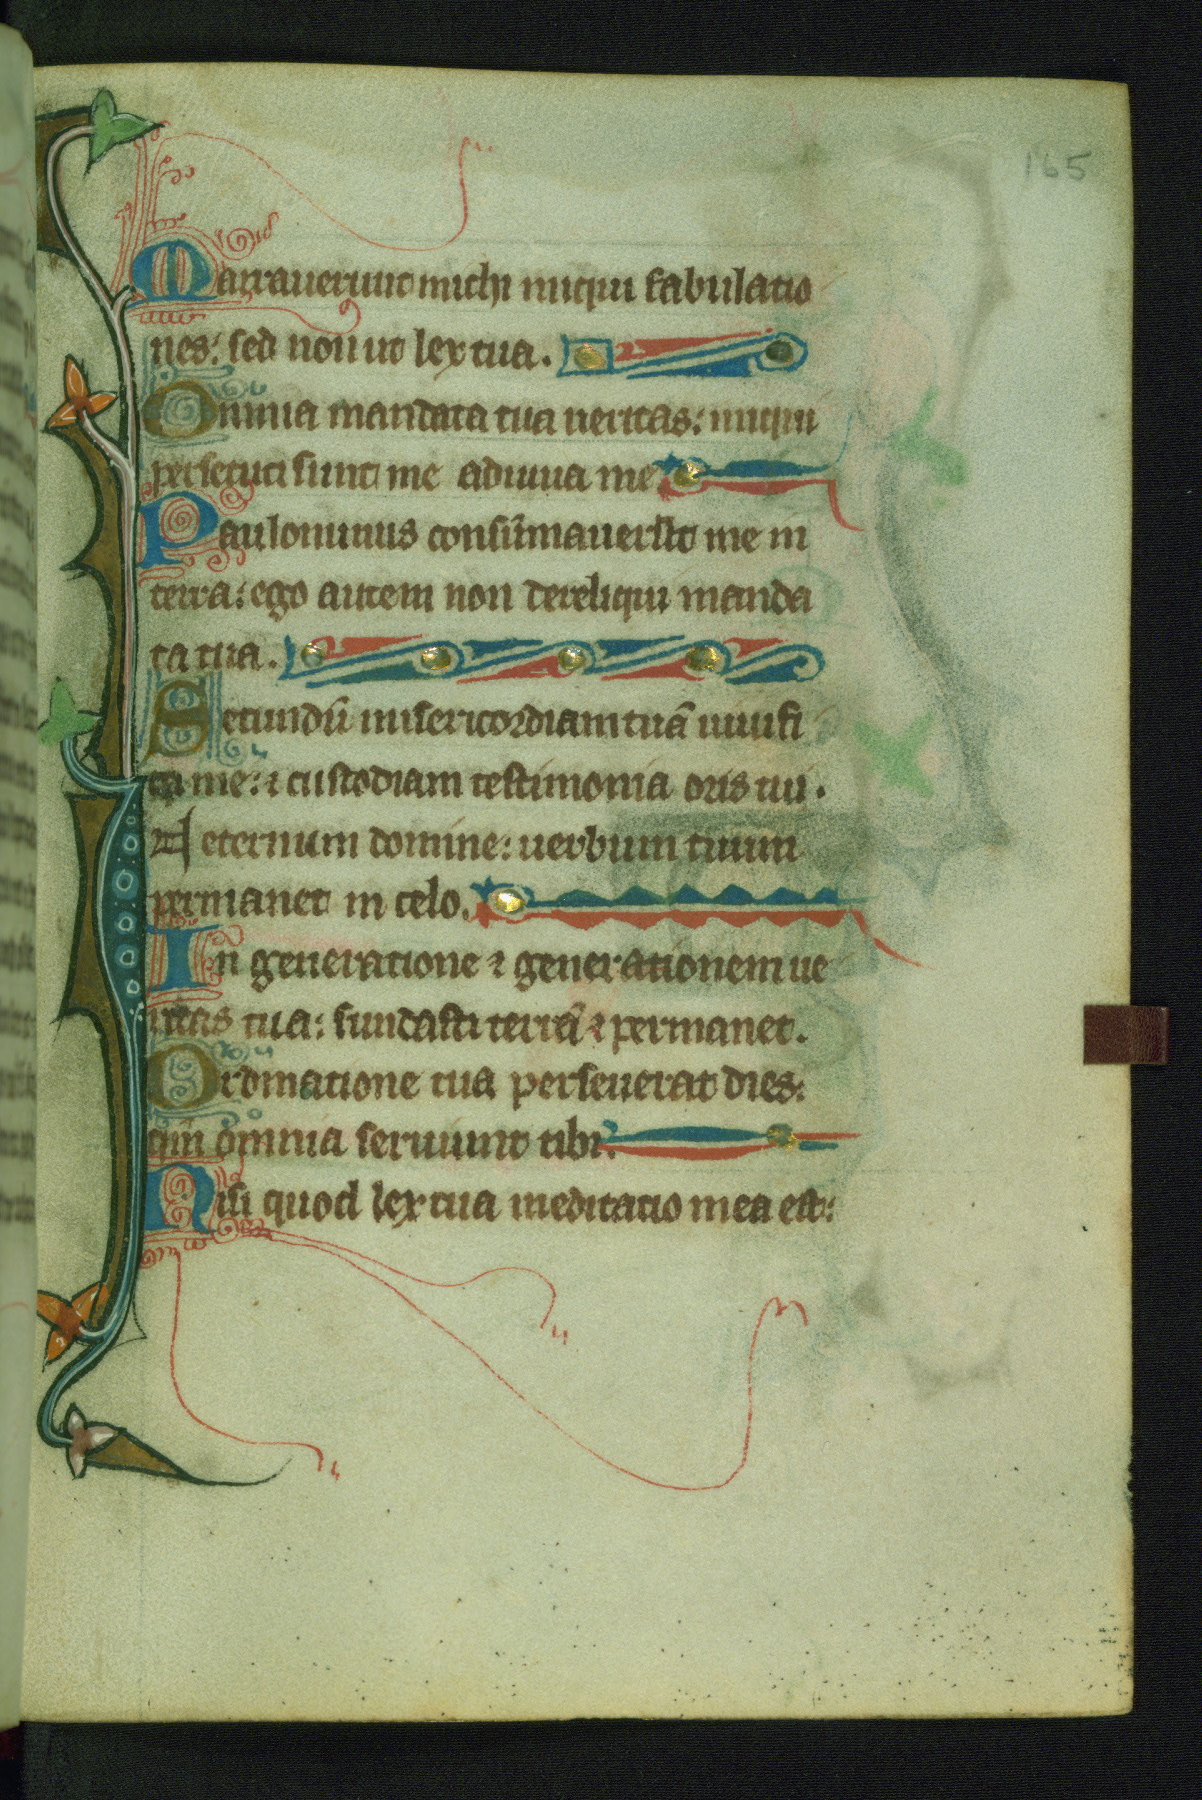 165
Narraverunt michi iniqui fabulatio
nes: sed non ut lex tua.
Omnia mandata tua veritas: iniqui
persecuti sunt me adiuva me
Paulominus consūmaverūt me in
terra: ego autem non dereliqui manda
ta tua.
Secundū misericordiam tuā vivifi
ca me: ⁊ custodiam testimonia oris tui.
In eternum domine: verbum tuum
permanet in celo.
In generatione ⁊ generationem ve
ritas tua: fundasti terrā ⁊ permanet.
Ordinatione tua perseverat dies:
qm̄ omnia serviunt tibi.
Nisi quod lex tua meditatio mea est: